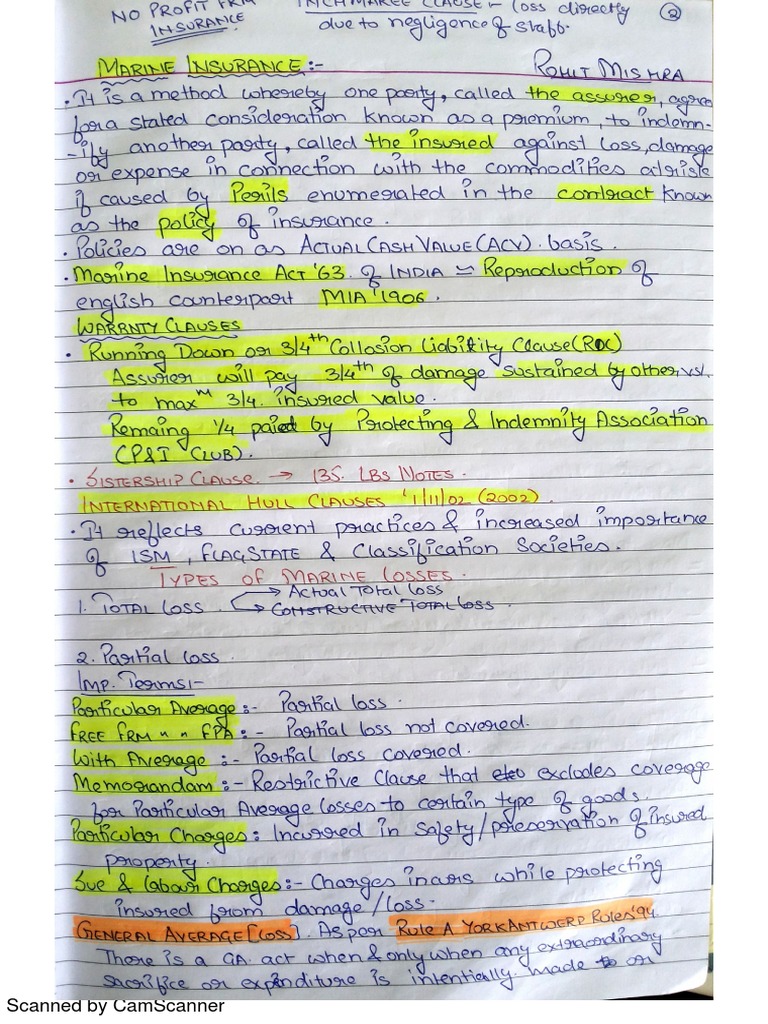 NO PROFIT FRM INCHMAREE CLAUSE - Loss directly ②
INSURANCE due to negligence of staff.
MARINE INSURANCE :- ROHIT MISHRA
• It is a method whereby one party, called the assurer, agree
for a stated consideration known as a premium, to indemn-
-ify another party, called the insured against loss, damage
or expense in connection with the commodities at risk
if caused by Perils enumerated in the contract known
as the policy of insurance.
• Policies are on as ACTUAL CASH VALUE (ACV). basis.
• Marine Insurance Act '63. of INDIA = Reproduction of
english counterpart MIA '1906.
WARRNTY CLAUSES
• Running Down or 3/4th Collosion Liability Clause (RDC)
Assurer will pay 3/4th of damage sustained by other vsl.
to maxm 3/4. insured value.
Remaing 1/4 paied by Protecting & Indemnity Association
(P&I CLUB).
• SISTERSHIP CLAUSE. → 135. LBS NOTES.
INTERNATIONAL HULL CLAUSES '1/11/02 (2002).
• It reflects current practices & increased importance
of ISM, FLAGSTATE & Classification Societies.
TYPES OF MARINE LOSSES.
1. TOTAL LOSS → Actual Total loss
→ CONSTRUCTIVE TOTAL loss.
2. Partial loss.
IMP. Terms:-
Particular Average :- Partial loss.
FREE FRM " " FPA :- Partial loss not covered.
With Average :- Partial loss covered.
Memorandam :- Restrictive Clause that excludes coverage
for Particular Average losses to certain type of goods.
Particular Charges : Incurred in safety/preservation of insured
property.
Sue & Labour Charges :- Charges incurs while protecting
insured from damage/loss.
GENERAL AVERAGE [LOSS]. As per Rule A YORK ANTWERP Rules '94.
There is a GA. act when & only when any extraordinary
sacrifice or expenditure is intentionally made to or
Scanned by CamScanner